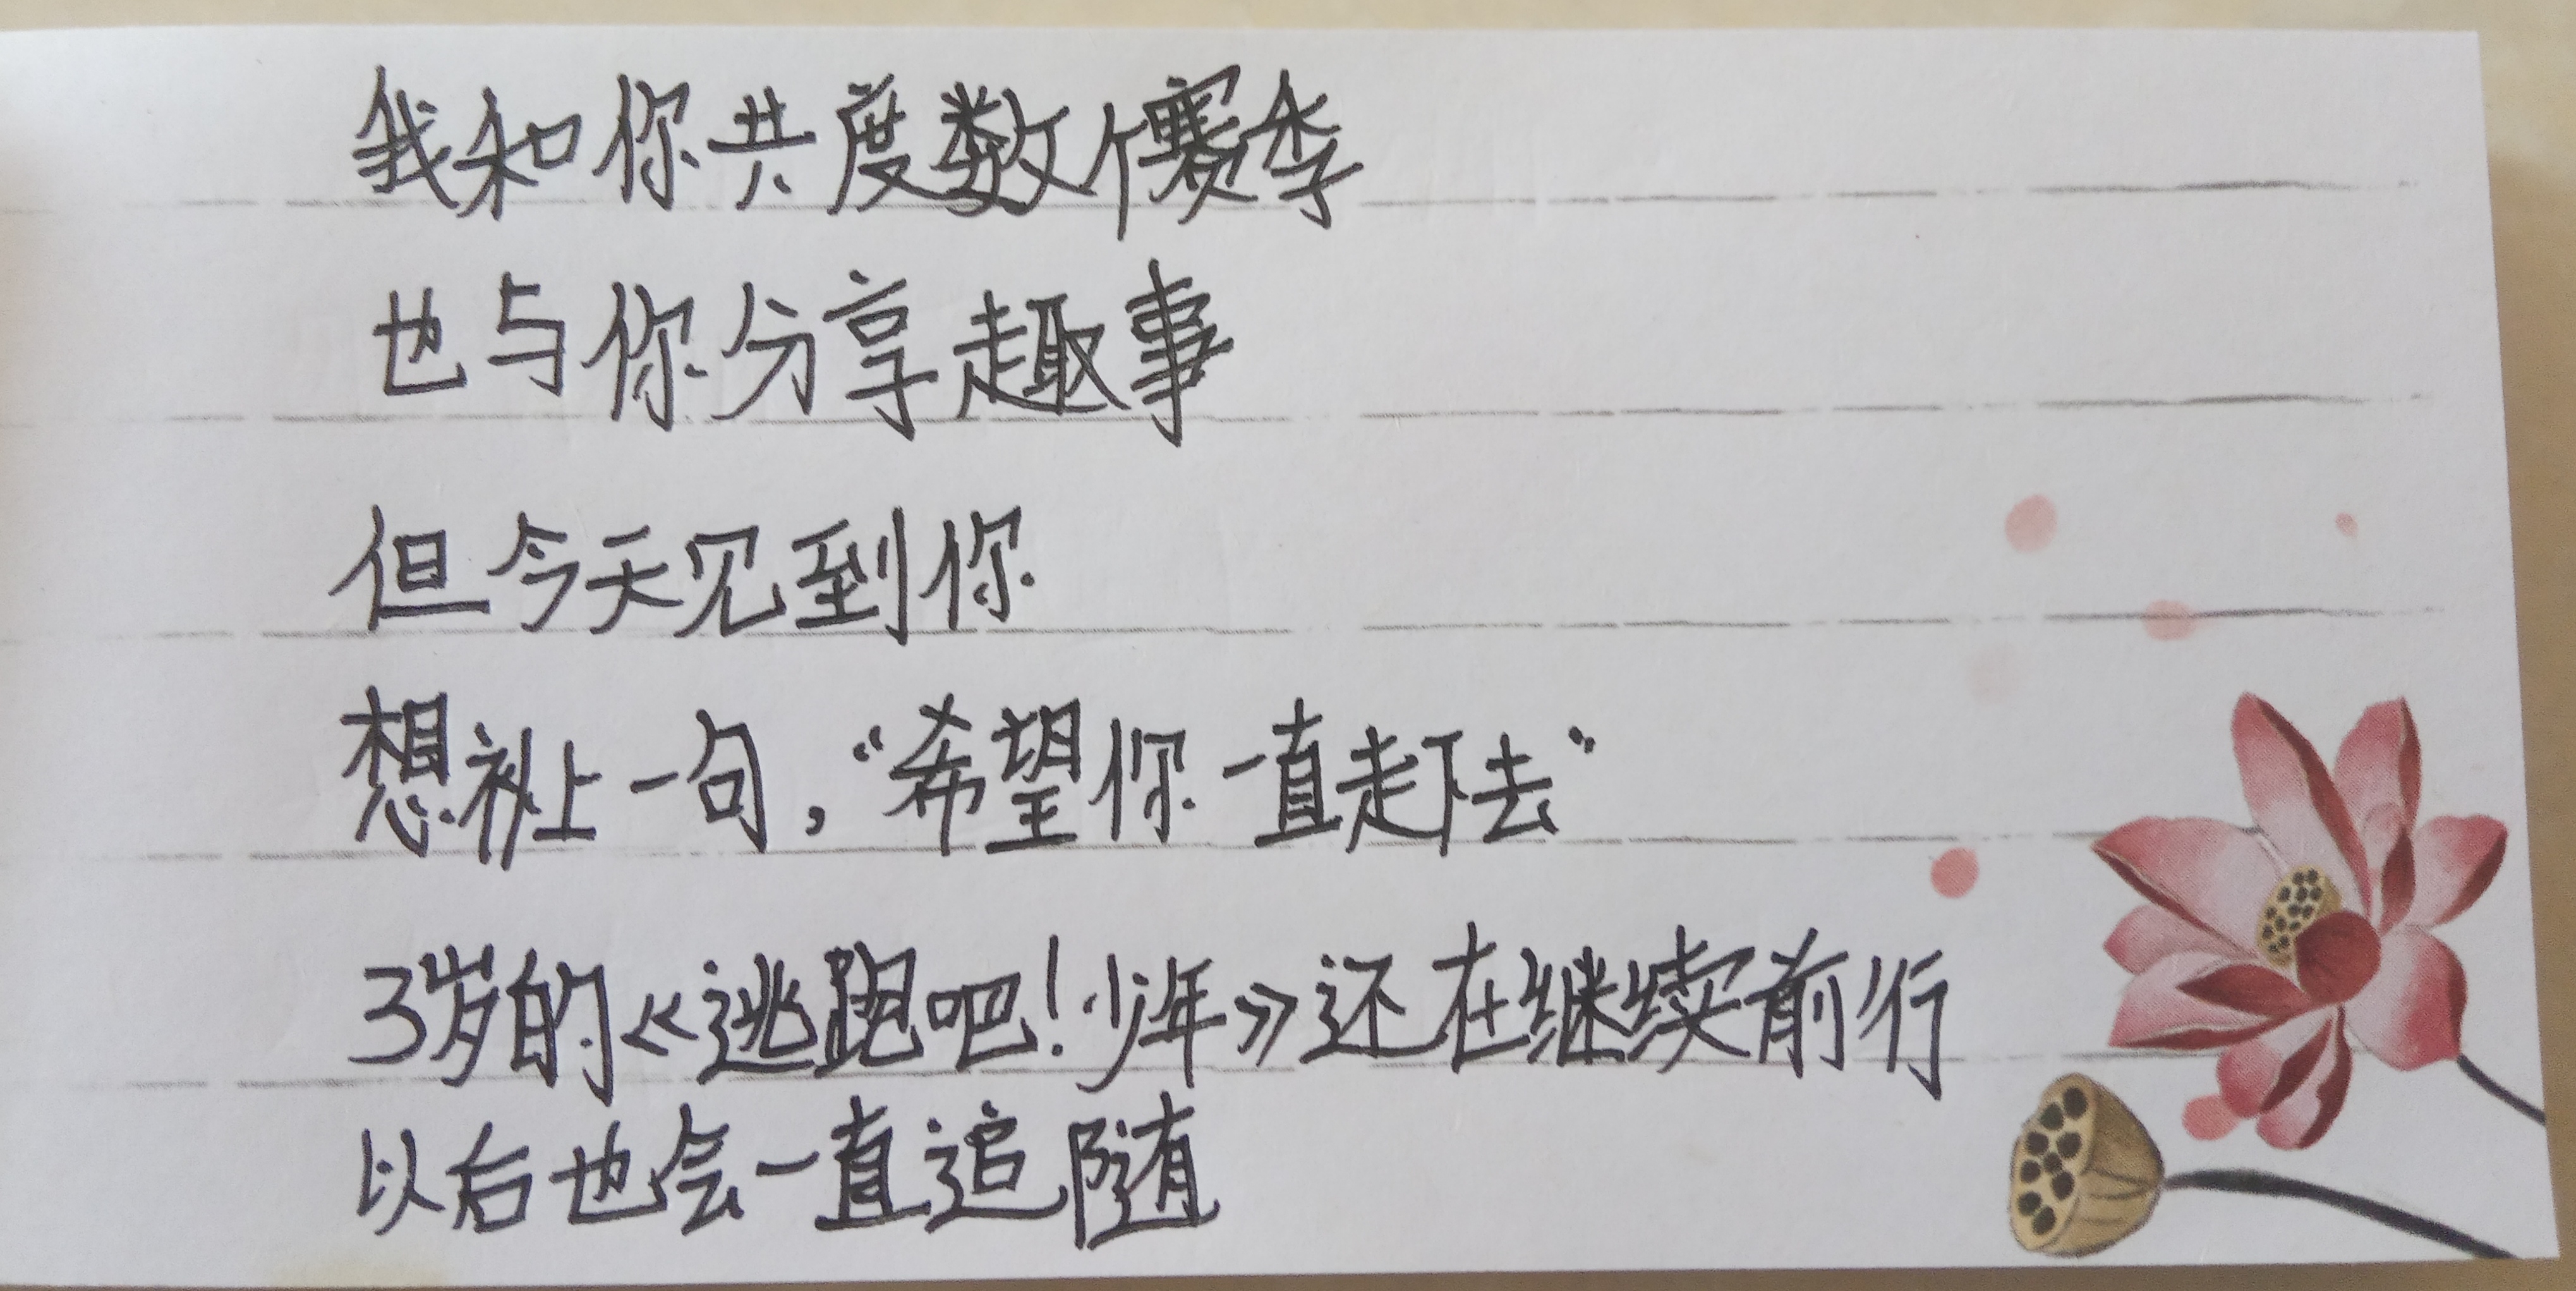 我和你共度数个赛季
也与你分享趣事
但今天见到你
想补上一句，“希望你一直走下去”
3岁的《逃跑吧！少年》还在继续前行
以后也会一直追随